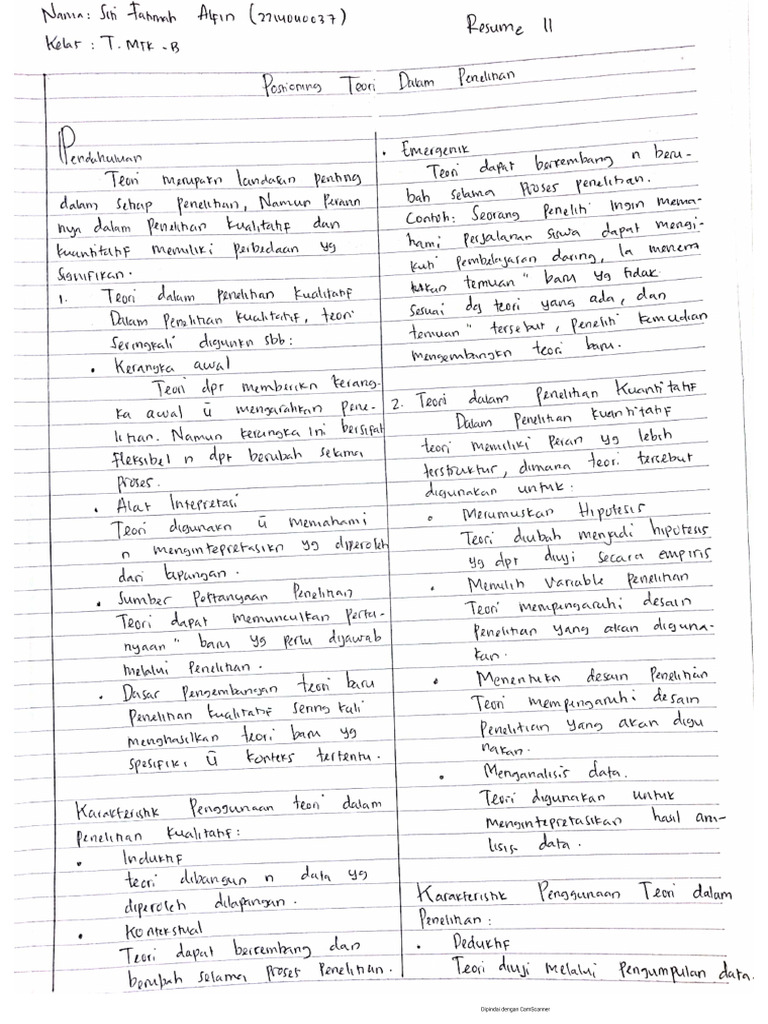 Nama: Siti Fatimah Alfin (2214040037)
Kelas : T. MTK -B
Resume 11
Positioning Teori Dalam Penelitian
Pendahuluan
Teori merupakn landasan penting
dalam setiap penelitian, Namun Perann
nya dalam Penelitian kualitatif dan
kuantitatif memiliki perbedaan yg
signifikan.
1. Teori dalam penelitian kualitatif
Dalam Penelitian kualitatif, teori
seringkali digunkn sbb:
• Kerangka awal
Teori dpr memberikn kerang-
ka awal ū mengarahkan Pene-
litian. Namun kerangka ini bersifat
fleksibel n dpt berubah selama
proses.
• Alat Intepretasi
Teori digunakn ū memahami
n mengintepretasikn yg diperoleh
dari lapangan.
• Sumber Pertanyaan Penelitian
Teori dapat memunculkan pertа-
nyaan" baru yg perlu dijawab
melalui Penelitian.
• Dasar Pengembangan teori baru
Penelitian kualitatif sering kali
menghasilkan teori baru yg
spesifik, ū konteks tertentu.
Karakteristik Penggunaan teori dalam
Penelitian Kualitatif:
• Induktif
teori dibangun n data yg
diperoleh dilapangan.
• Kontekstual
Teori dapat berkembang dan
berubah selama Proses Penelitian.
• Emergenik
Teori dapat berkembang n beru-
bah selama Proses penelitian.
Contoh: Seorang Peneliti ingin mema-
hami perjalanan siswa dapat mengi-
kuti pembelajaran daring, Ia menemu
kan temuan" baru yg tidak
sesuai dg teori yang ada, dan
temuan" tersebut, peneliti kemudian
mengembangkn teori baru.
2. Teori dalam Penelitian Kuantitatif
Dalam Penelitian kuantitatif
teori memiliki peran yg lebih
terstruktur, dimana teori tersebut
digunakan untuk:
• Merumuskan Hipotesis
Teori diubah menjadi hipotesis
yg dpt diuji secara empiris
• Memilih Variable penelitian
Teori mempengaruhi desain
Penelitian yang akan diguna-
kan.
• Menentukn desain Penelitian
Teori mempengaruhi desain
Penelitian yang akan digu
nakan.
• Menganalisis data.
Teori digunakan untuk
mengintepretasikan hasil ana-
lisis data.
Karakteristik Penggunaan Teori dalam
Penelitian:
• Deduktif
Teori diuji melalui Pengumpulan data.
Dipindai dengan CamScanner